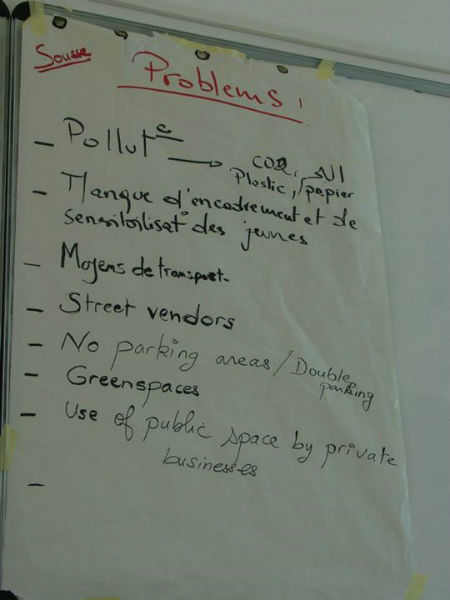 Sousse
Problems :
- Pollut° → CO2, sol
Plastic, papier
- Manque d'encadrement et de
sensibilisat° des jeunes
- Moyens de transport.
- Street vendors
- No parking areas / Double
parking
- Greenspaces
- Use of public space by private
businesses
-